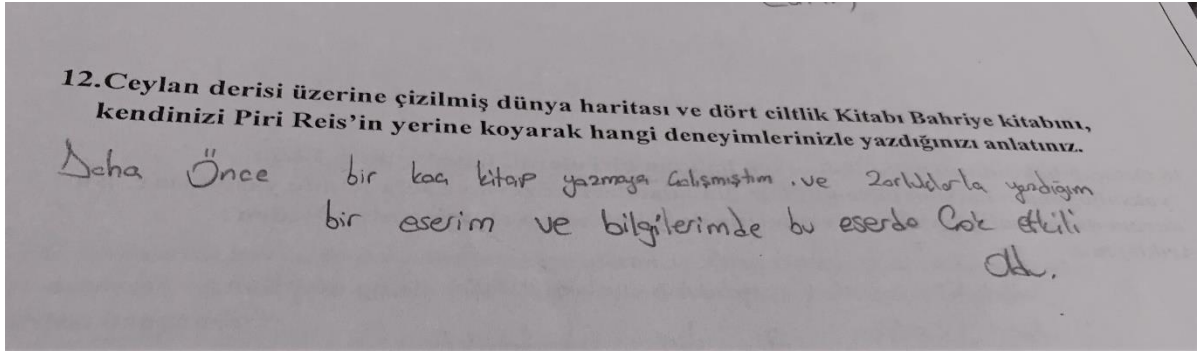 12.Ceylan derisi üzerine çizilmiş dünya haritası ve dört ciltlik Kitabı Bahriye kitabını,
kendinizi Piri Reis'in yerine koyarak hangi deneyimlerinizle yazdığınızı anlatınız.
Daha Önce bir kaç kitap yazmaya Çalışmıştım . ve zorluklarla yazdığım
bir eserim ve bilgilerimde bu eserde Çok etkili
oldu.